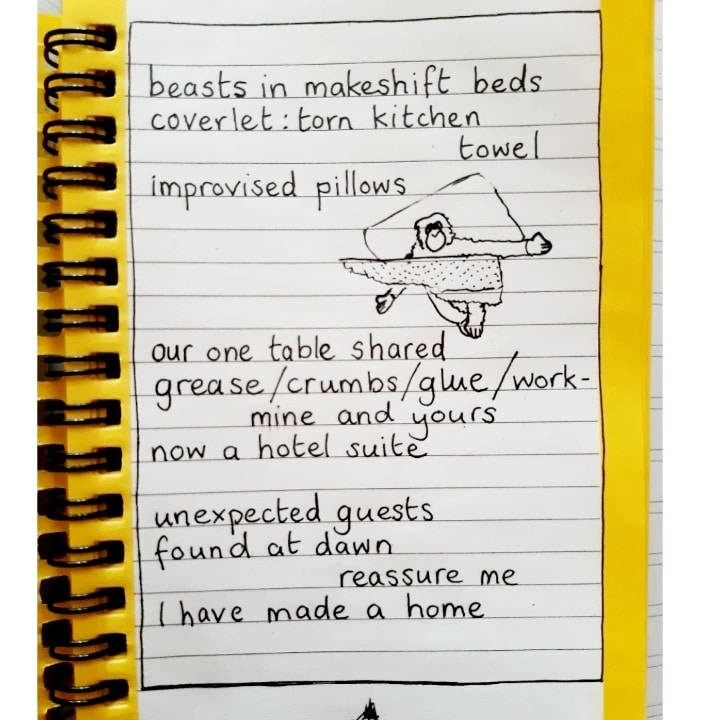 beasts in makeshift beds
coverlet: torn kitchen
towel
improvised pillows
our one table shared
grease/crumbs/glue/work-
mine and yours
now a hotel suite
unexpected guests
found at dawn
reassure me
I have made a home